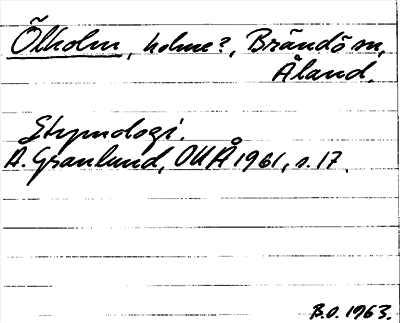 Ölholm, holme?, Brändö sn,
Åland.
Etymologi.
Å. Granlund, OUÅ 1961, s. 17.
B.O. 1963.